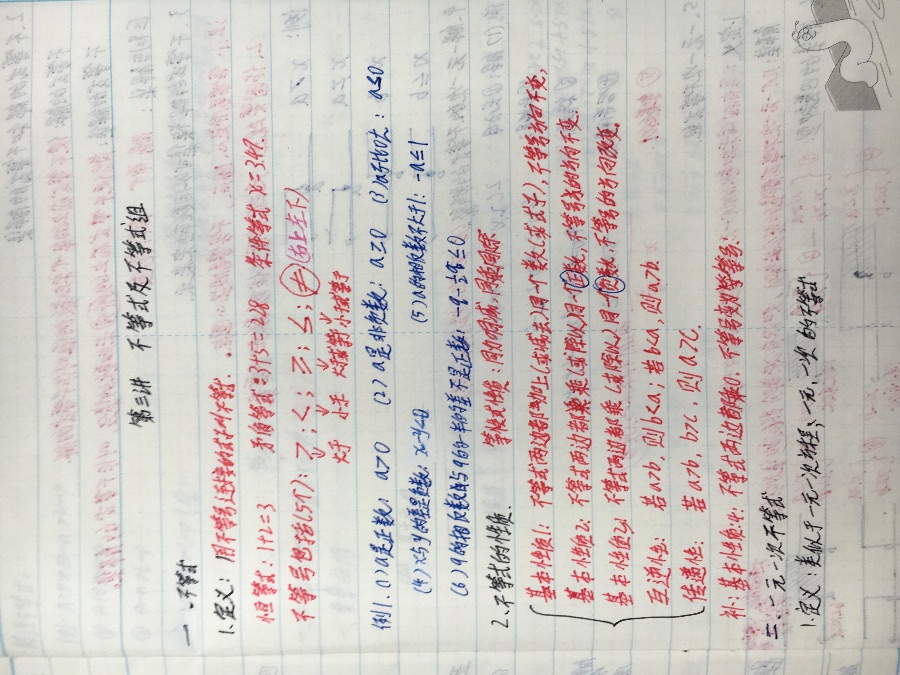 第三讲 不等式及不等式组
一、不等式
1.定义：用不等号连接的式子叫不等式.
恒等式：1+2=3 矛盾等式：3+5=228 条件等式 x=347.
不等号包括(5个)：>；<；≥；≤；≠(右上左下)
大于 小于 大或等 小或等于
例1、(1)a是正数：a>0 (2)a是非负数：a≥0 (3)a不比0大：a≤0
(4)x与y的差是负数：x-y<0 (5)a的相反数不大于1：-a≤1
(6)q的相反数与q的一半的差不是正数：-q-½q≤0
2、不等式的性质、 等式性质：同加同减，同乘同除
基本性质1：不等式两边都加上(或减去)同一个数(或式子)，不等号方向不变，
基本性质2：不等式两边都乘(或除以)同一个正数，不等号的方向不变.
基本性质3：不等式两边都乘(或除以)同一个负数，不等号的方向改变。
互逆性：若a>b，则b<a；若b<a，则a>b.
传递性：若a>b，b>c，则a>c.
补：基本性质4：不等式两边都乘0，不等号变为等号.
二、一元一次不等式
1.定义：类似于一元一次方程，一元、一次的不等式